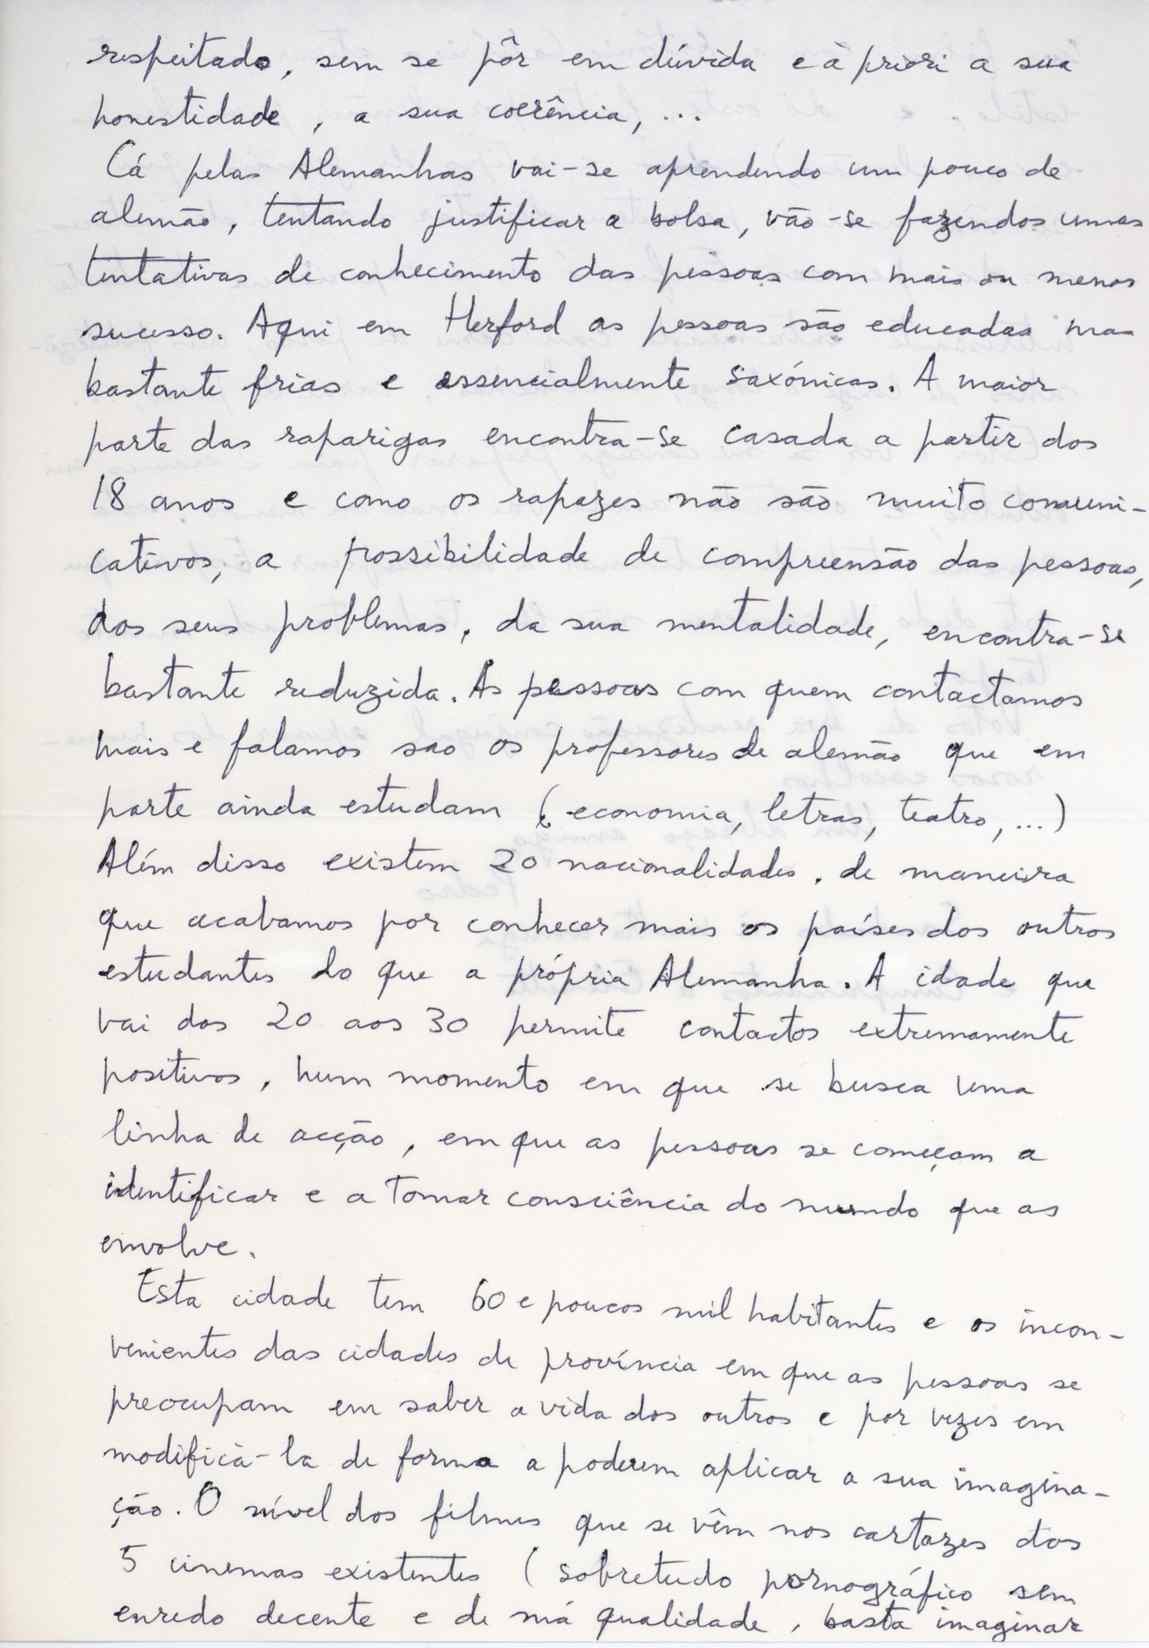 respeitado, sem se pôr em dúvida e à priori a sua
honestidade, a sua coerência, ...
Cá pelas Alemanhas vai-se aprendendo um pouco de
alemão, tentando justificar a bolsa, vão-se fazendos umas
tentativas de conhecimento das pessoas com mais ou menos
sucesso. Aqui em Herford as pessoas são educadas mas
bastante frias e essencialmente saxónicas. A maior
parte das raparigas encontra-se casada a partir dos
18 anos e como os rapazes não são muito comuni-
cativos, a possibilidade de compreensão das pessoas,
dos seus problemas, da sua mentalidade, encontra-se
bastante reduzida. As pessoas com quem contactamos
mais e falamos sao os professores de alemão que em
parte ainda estudam (economia, letras, teatro, ...)
Além disso existem 20 nacionalidades, de maneira
que acabamos por conhecer mais os países dos outros
estudantes do que a própria Alemanha. A idade que
vai dos 20 aos 30 permite contactos extremamente
positivos, num momento em que se busca uma
linha de acção, em que as pessoas se começam a
identificar e a tomar consciência do mundo que as
envolve.
Esta cidade tem 60 e poucos mil habitantes e os incon-
venientes das cidades de província em que as pessoas se
preocupam em saber a vida dos outros e por vezes em
modificá-la de forma a poderem aplicar a sua imagina-
ção. O nível dos filmes que se vêm nos cartazes dos
5 cinemas existentes (sobretudo pornográfico sem
enredo decente e de má qualidade, basta imaginar